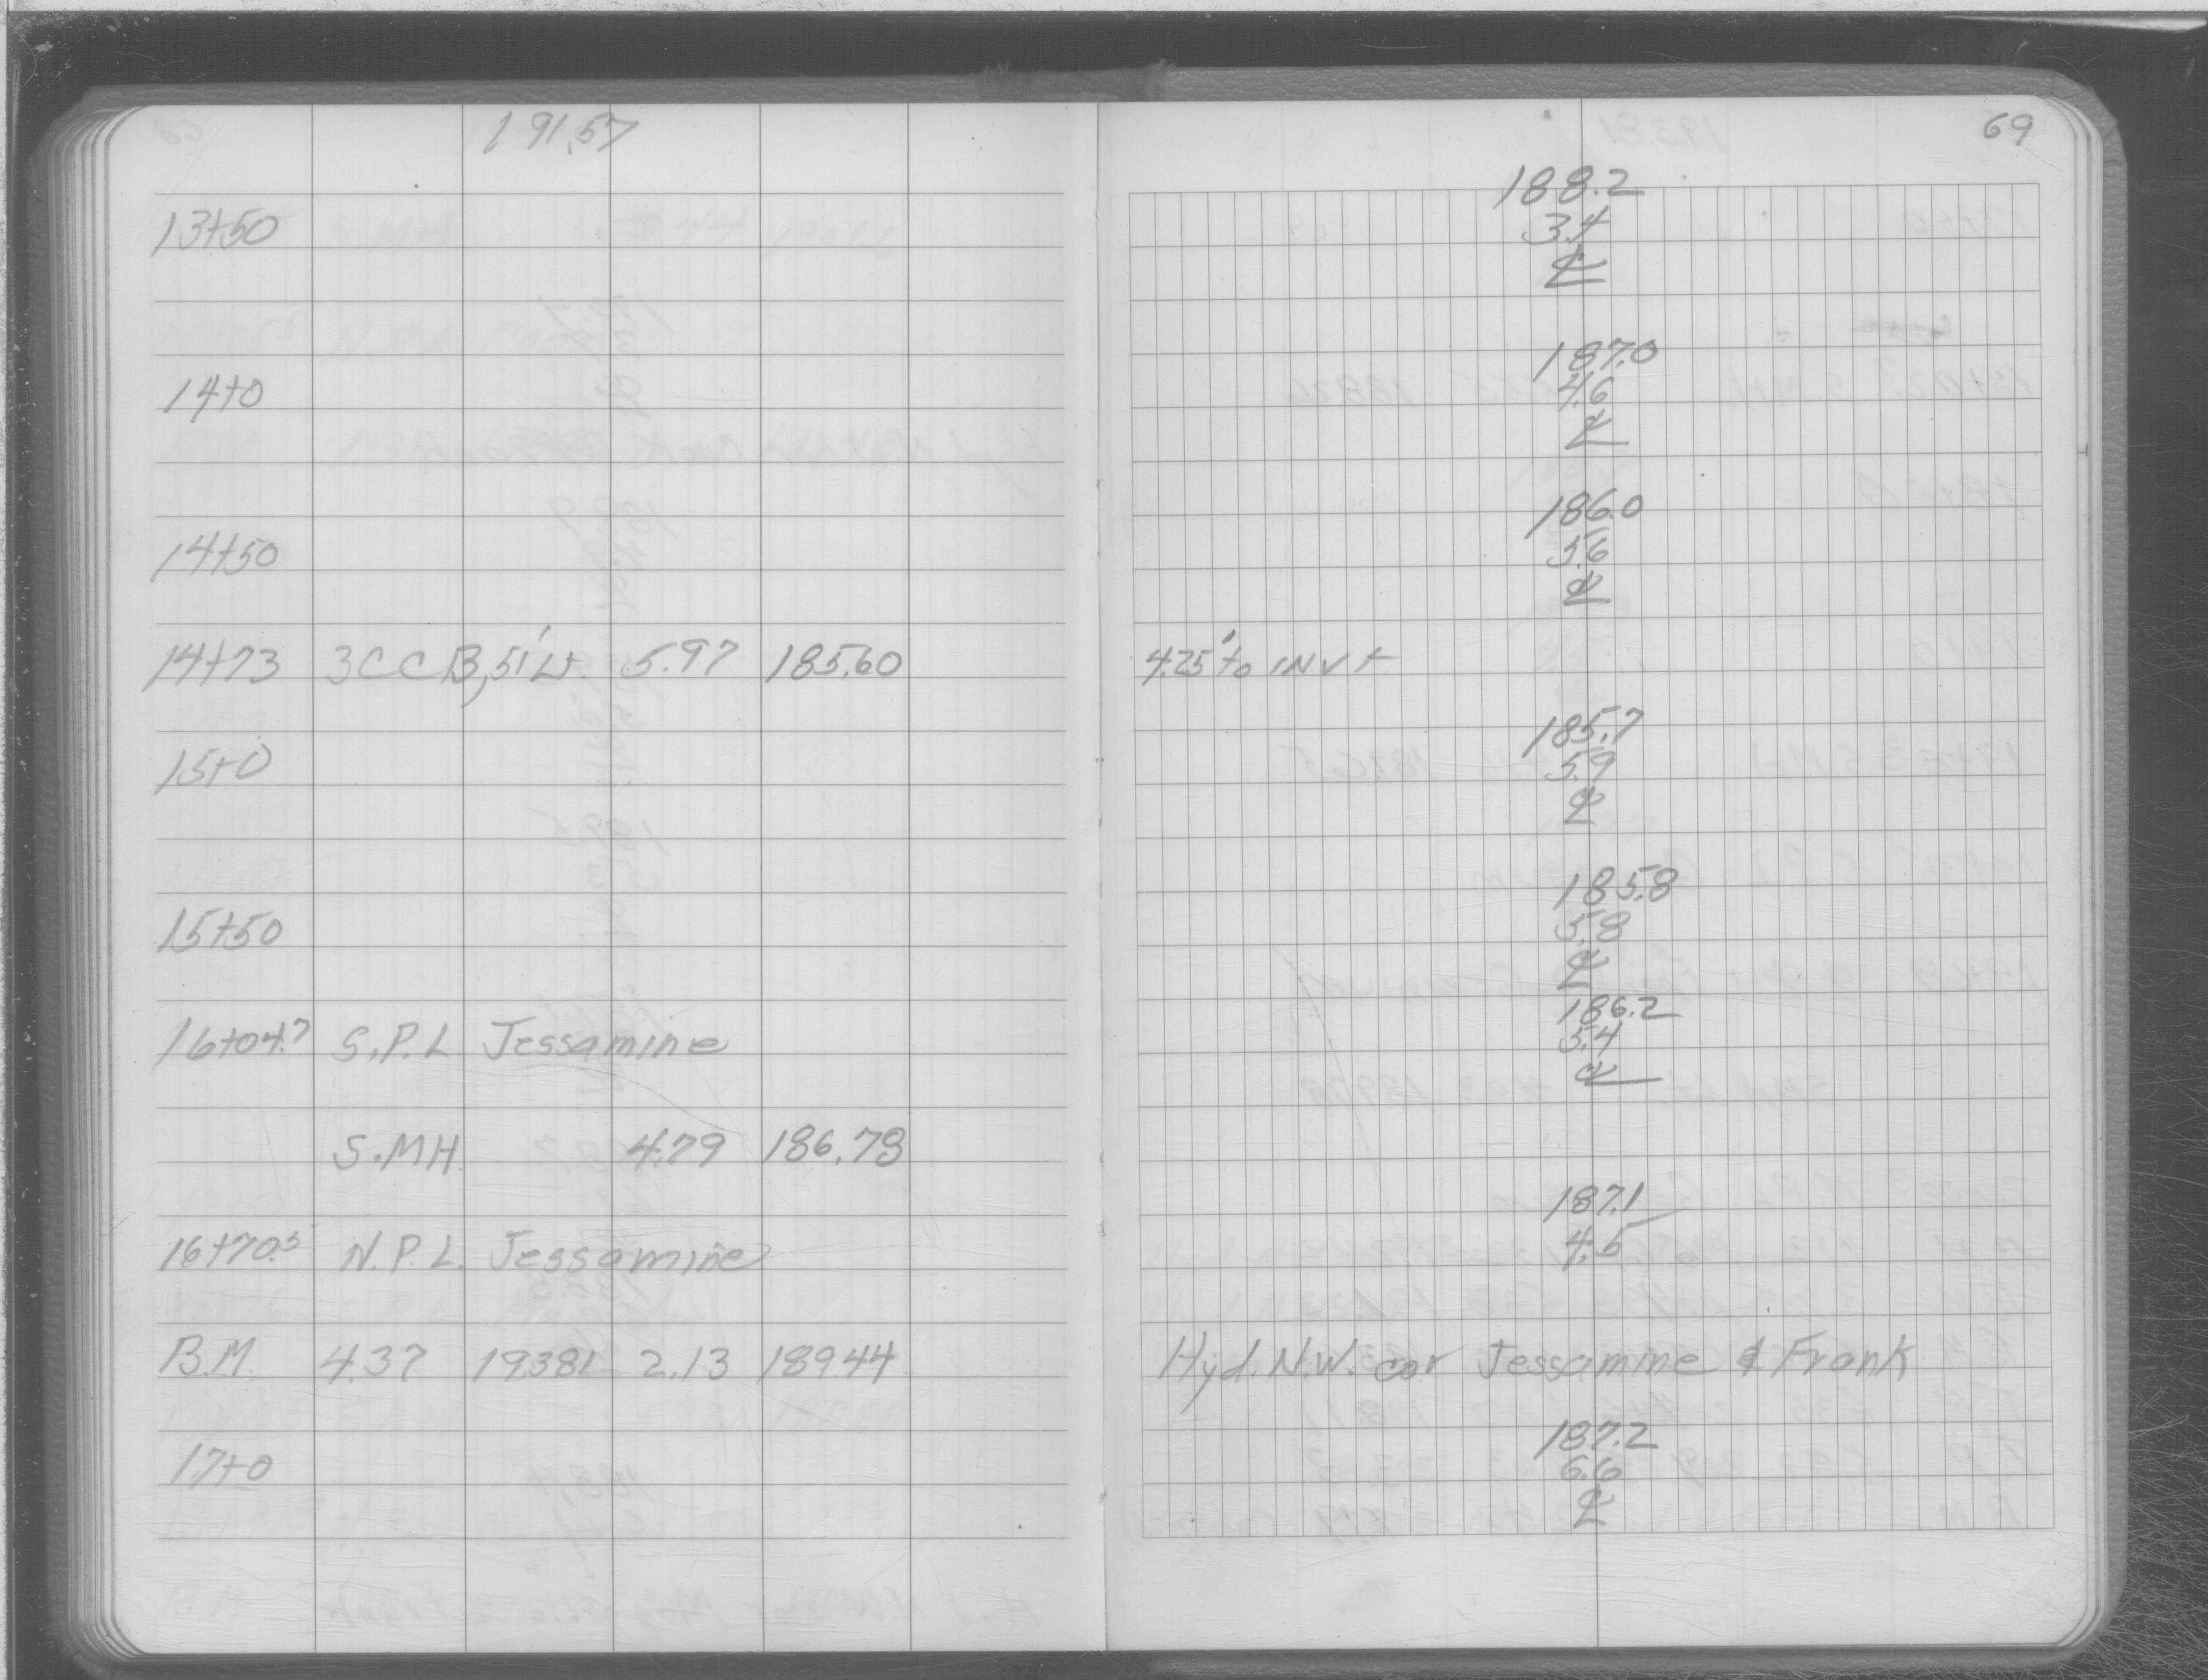 191.57
69
188.2
13+50 3.4
℄
187.0
14+0 4.6
℄
186.0
14+50 5.6
℄
14+73 3CCB, 51' Lt. 5.97 185.60 4.25' to INVt
185.7
15+0 5.9
℄
185.8
15+50 5.8
℄
186.2
16+04.7 S.P.L Jessamine 5.4
℄
S.MH 4.79 186.78
187.1
16+70.5 N.P.L. Jessamine 4.5
B.M. 4.37 193.81 2.13 189.44 Hyd. N.W. cor Jessamine & Frank
187.2
17+0 6.6
℄